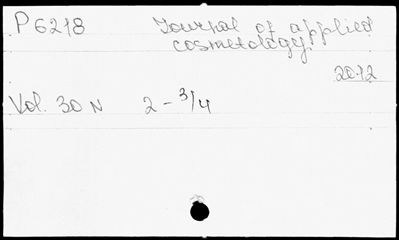 P 6218 Journal of applied
cosmetology.
2012
Vol. 30 N 2 - 3/4